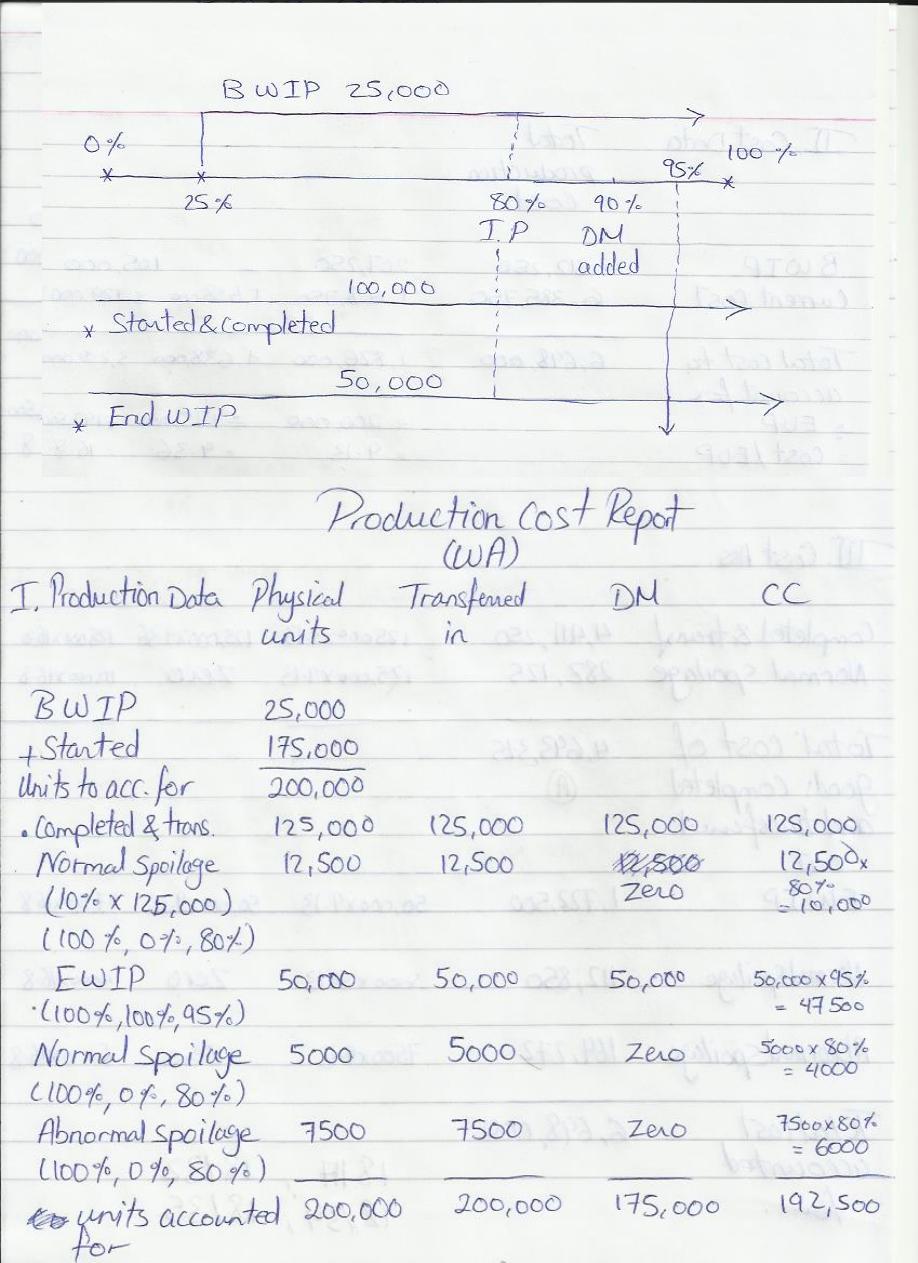 BWIP 25,000
0%
100%
95%
25%
80%
90%
I.P
DM
added
100,000
* Started & completed
50,000
* End WIP
Production Cost Report
(WA)
I. Production Data Physical units Transferred in DM CC
BWIP 25,000
+ Started 175,000
Units to acc. for 200,000
. Completed & trans. 125,000 125,000 125,000 125,000
Normal Spoilage 12,500 12,500 Zero 12,500 x 80% = 10,000
(10% x 125,000)
(100%, 0%, 80%)
EWIP 50,000 50,000 50,000 50,000 x 95%
(100%, 100%, 95%) = 47500
Normal Spoilage 5000 5000 Zero 5000 x 80%
= 4000
(100%, 0%, 80%)
Abnormal Spoilage 7500 7500 Zero 7500 x 80%
(100%, 0%, 80%) = 6000
units accounted for 200,000 200,000 175,000 192,500